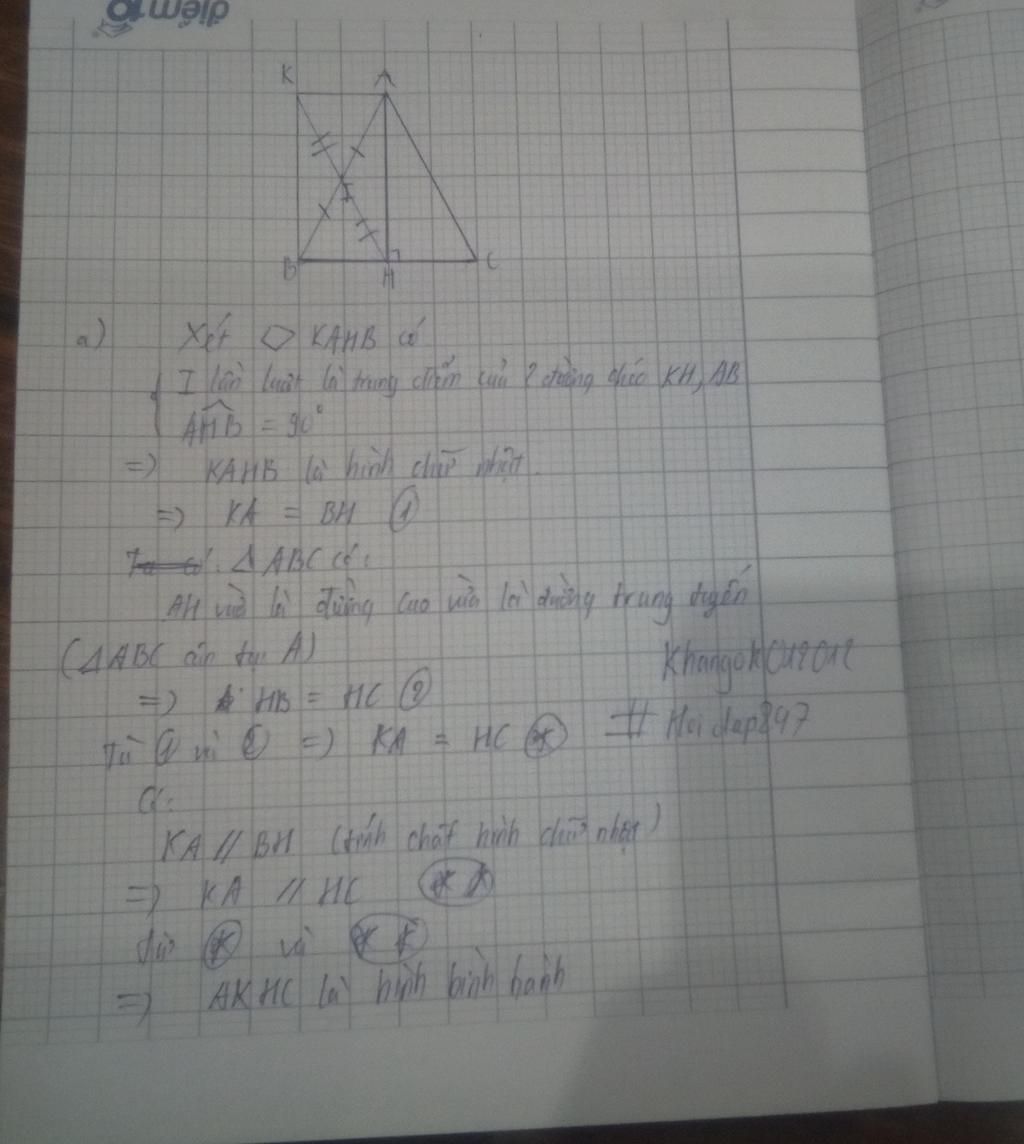 điểm 10
K A
I
B H C
a) Xét ▱ KAHB có
I lần lượt là trung điểm của 2 đường chéo KH, AB
AHB = 90°
=> KAHB là hình chữ nhật.
=> KA = BH ①
Δ ABC có:
AH vừa là đường cao vừa là đường trung tuyến
(Δ ABC cân tại A)
=> HB = HC ②
Khangok012012
Từ ① và ② => KA = HC (*)
# Hoidap247
Có:
KA // BH (tính chất hình chữ nhật)
=> KA // HC (**)
từ (*) và (**)
=> AKHC là hình bình hành